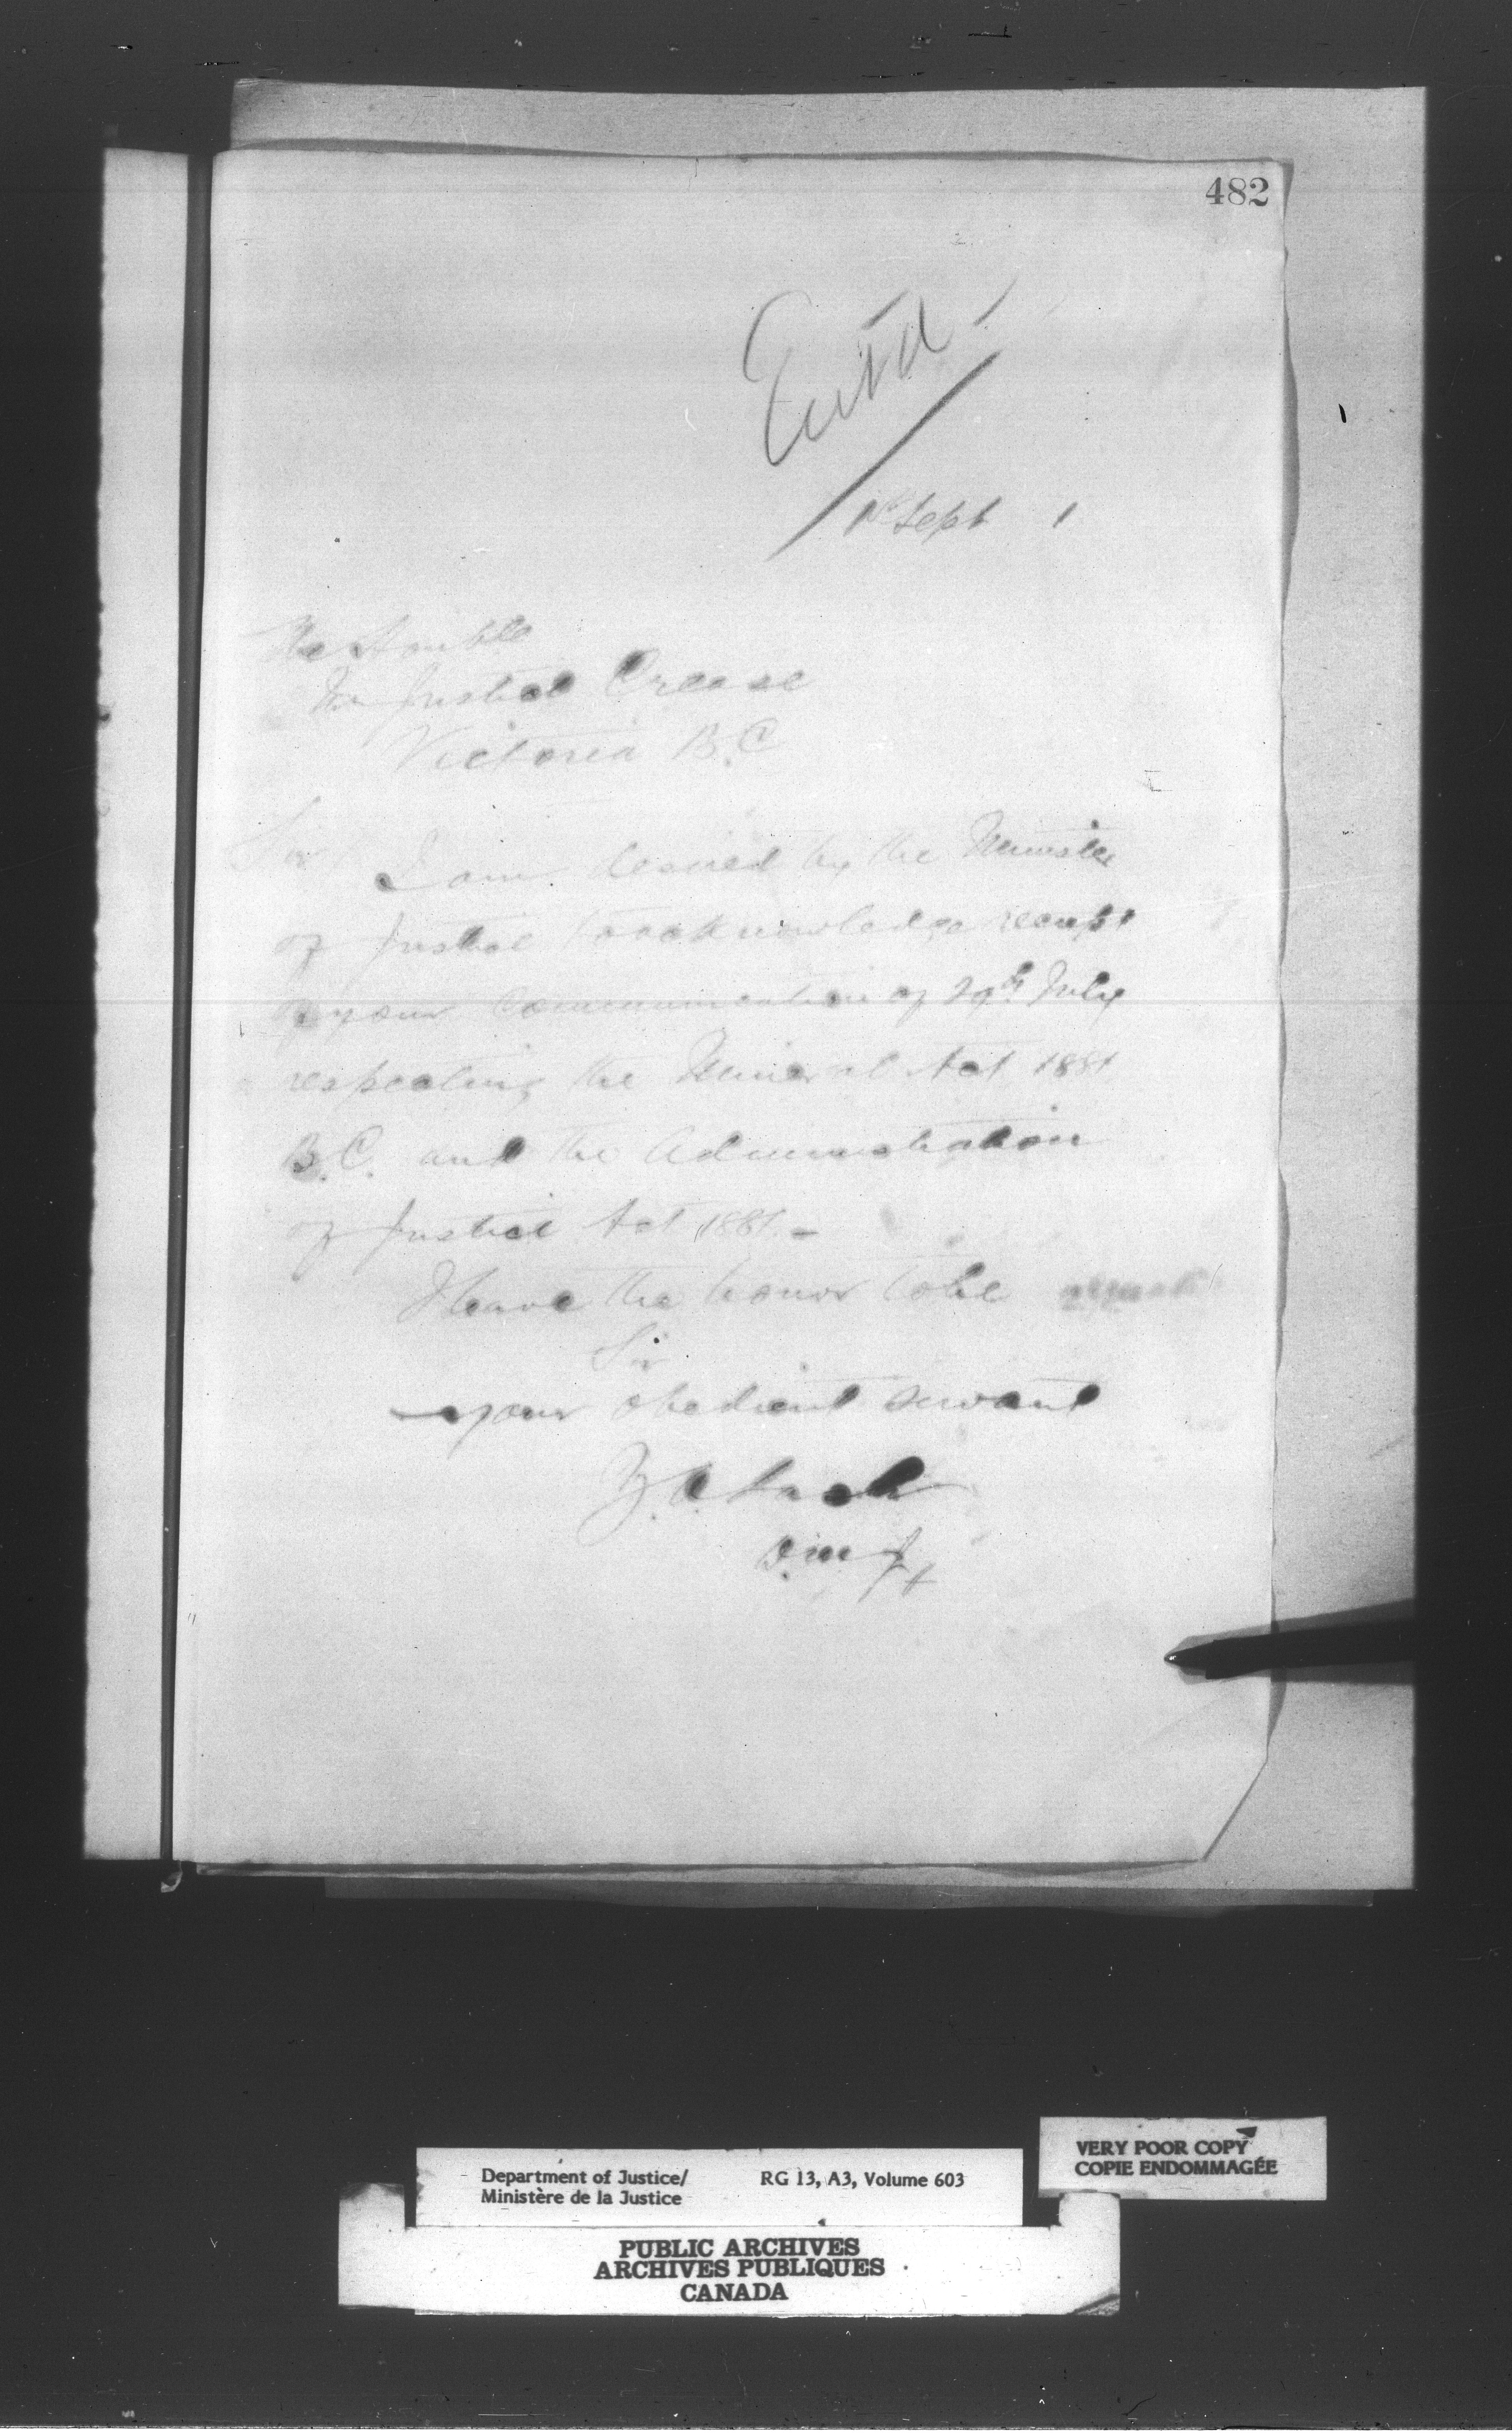 482
Entd
1st Sept 1
The Honble
Mr Justice Crease
Victoria B.C
Sir
I am desired by the Minister
of Justice to acknowledge receipt
of your communication of 29th July
respecting the Mineral Act 1881
B.C. and the Administration
of Justice Act 1881. -
I have the honor to be
Sir
your obedient servant
Z.A. Lash
D.M.J.
VERY POOR COPY
COPIE ENDOMMAGÉE
Department of Justice/ RG 13, A3, Volume 603
Ministère de la Justice
PUBLIC ARCHIVES
ARCHIVES PUBLIQUES
CANADA